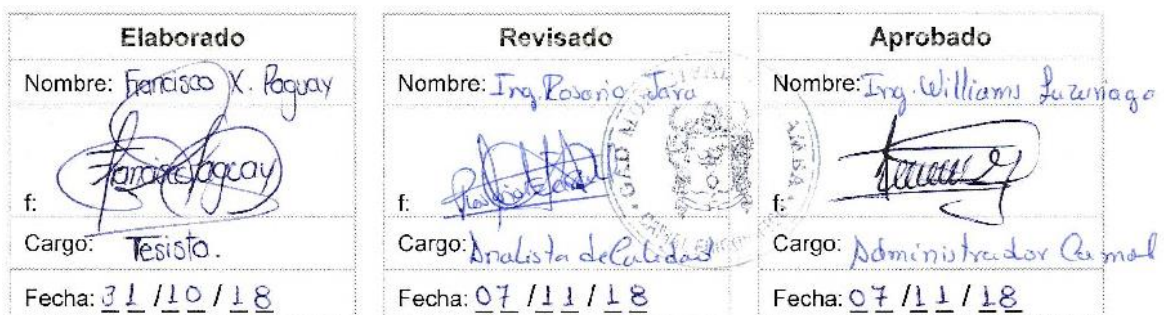 Elaborado
Nombre: Francisco X. Paguay
Francisco Paguay
f:
Cargo: Tesista.
Fecha: 31 / 10 / 18
Revisado
Nombre: Ing. Rosario Jara
f:
Cargo: Analista de Calidad
Fecha: 07 / 11 / 18
GAD MU
Aprobado
Nombre: Ing. Williams Luzuriaga
f:
Cargo: Administrador Camal
Fecha: 07 / 11 / 18